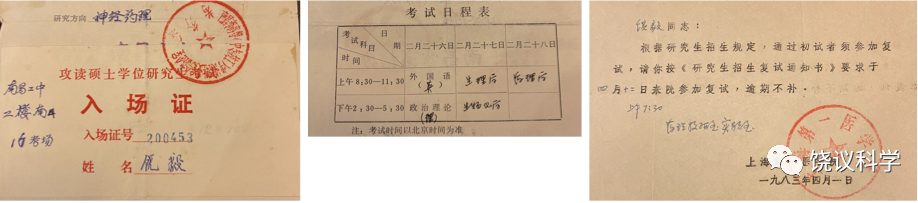 研究方向 神经药理
攻读硕士学位研究生
入场证
南昌二中
二楼南
16考场
入场证号 200453
姓名 饶毅
考试日程表
考试科目 日期 时间 二月二十六日 二月二十七日 二月二十八日
上午8:30—11:30 外国语(英) 生理学 药理学
下午2:30—5:30 政治理论 生物化学
注:考试时间以北京时间为准
饶毅同志:
根据研究生招生规定,通过初试者须参加复
试,请你按《研究生招生复试通知书》要求于
四月十二日来院参加复试,逾期不补。
上午7:30
上海第一医学
一九八三年四月一日
饶议科学